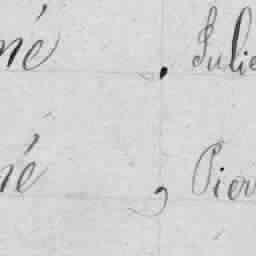 né . Julie
né , Pier